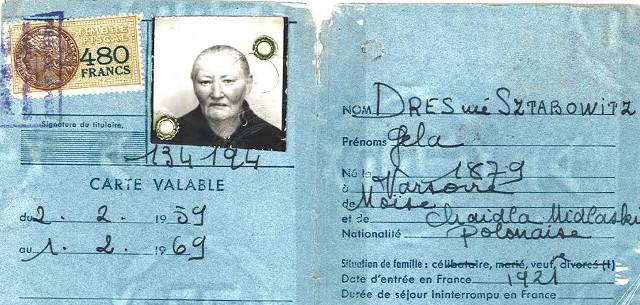 TIMBRE
FISCAL
480
FRANCS
Signature du titulaire,
134194
CARTE VALABLE
du 2. 2. 1959
au 1. 2. 1969
NOM DRES née SZTABOWITZ
Prénoms Gela
Né le 1879
à Varsovie
de Moïse
et de Chaidla Midlaski
Nationalité Polonaise
Situation de famille : célibataire, marié, veuf, ve divorcé (1)
Date d'entrée en France 1921
Durée de séjour ininterrompu en France